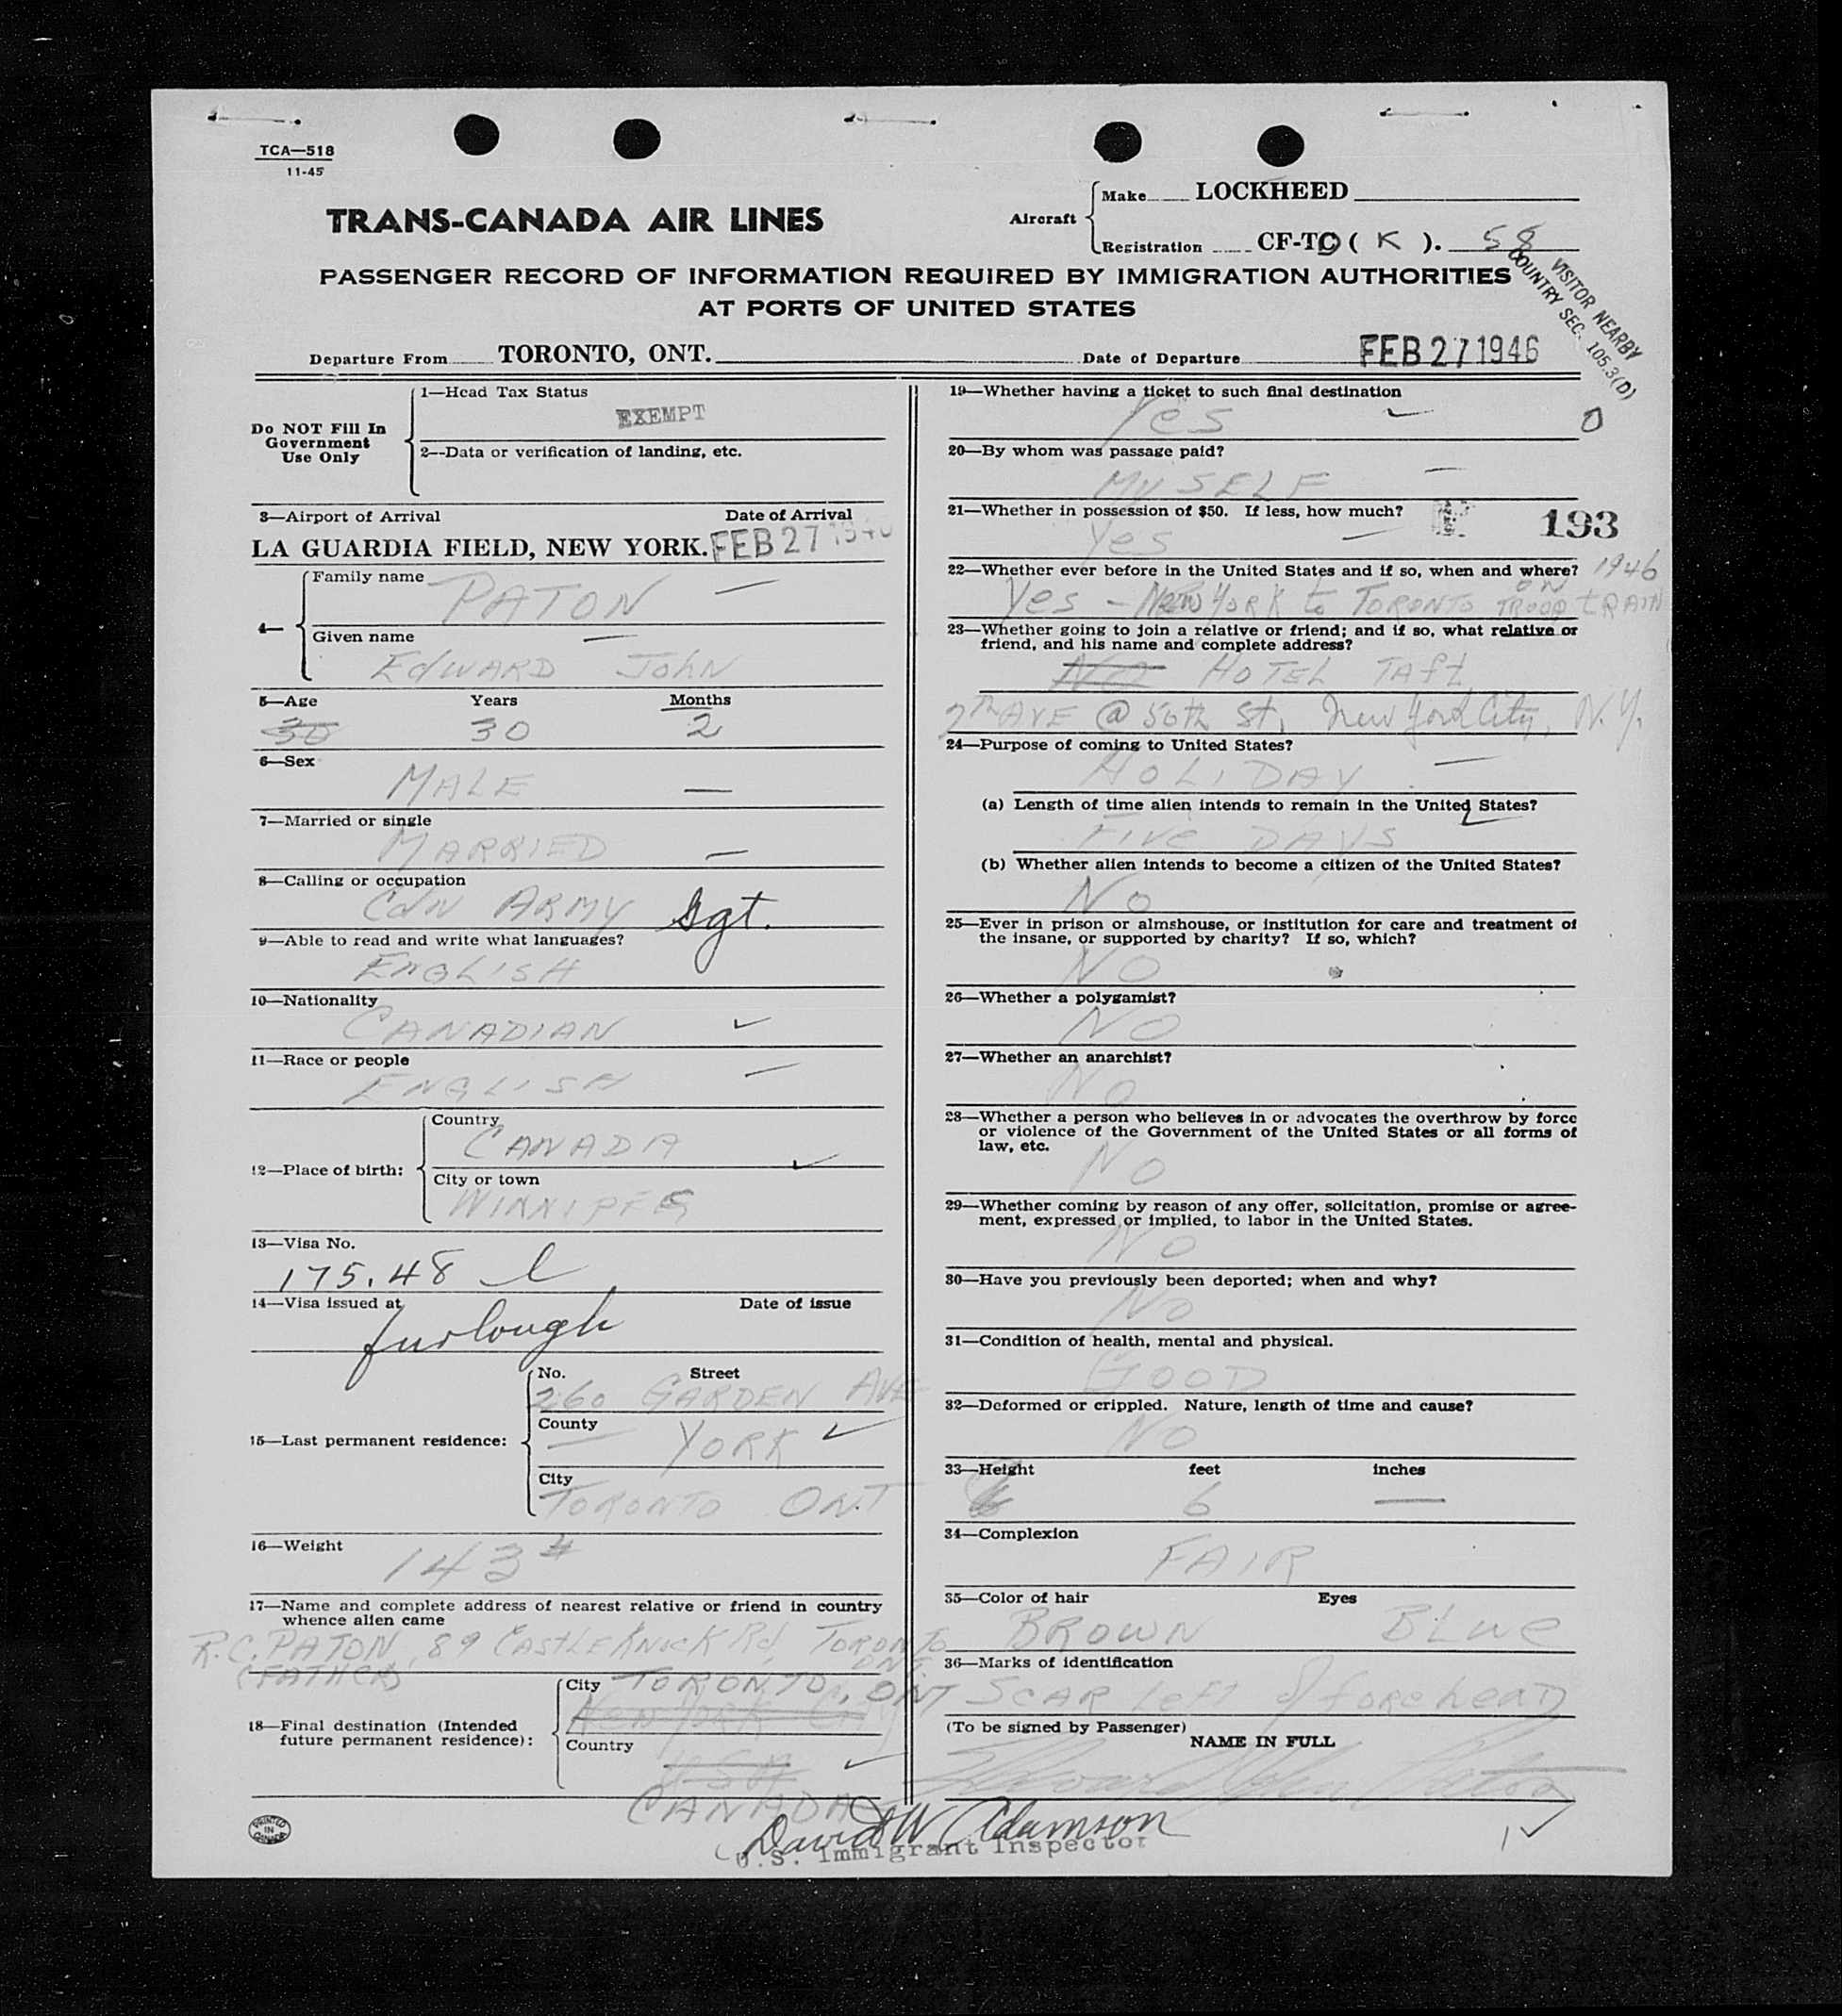 TCA—518
11-45
TRANS-CANADA AIR LINES
Aircraft
Make LOCKHEED
Registration CF-TC ( K ). 58
PASSENGER RECORD OF INFORMATION REQUIRED BY IMMIGRATION AUTHORITIES
AT PORTS OF UNITED STATES
VISITOR NEARBY
COUNTRY SEC. 105.3(D)
Departure From TORONTO, ONT. Date of Departure FEB 27 1946
Do NOT Fill In
Government
Use Only
1—Head Tax Status
EXEMPT
2--Data or verification of landing, etc.
3—Airport of Arrival Date of Arrival
LA GUARDIA FIELD, NEW YORK. FEB 27 1946
4— Family name
PATON
Given name
EDWARD JOHN
5—Age Years Months
30 30 2
6—Sex
MALE
7—Married or single
MARRIED
8—Calling or occupation
CDN ARMY Sgt.
9—Able to read and write what languages?
ENGLISH
10—Nationality
CANADIAN
11—Race or people
ENGLISH
12—Place of birth:
Country
CANADA
City or town
WINNIPEG
13—Visa No.
175.48 l
14—Visa issued at Date of issue
furlough
15—Last permanent residence:
No. Street
260 GARDEN AVE
County
YORK
City
TORONTO ONT
16—Weight
143 #
17—Name and complete address of nearest relative or friend in country
whence alien came
R.C. PATON, 89 CASTLEKNOCK Rd, TORONTO
ONT.
(FATHER)
18—Final destination (Intended
future permanent residence):
City TORONTO, ONT
NEW YORK CITY
Country
USA
CANADA
PRINTED
IN
CANADA
19—Whether having a ticket to such final destination
Yes
0
20—By whom was passage paid?
MYSELF
21—Whether in possession of $50. If less, how much?
Yes
193
22—Whether ever before in the United States and if so, when and where? 1946
Yes – New YORK to TORONTO ON TROOP tRAIN
23—Whether going to join a relative or friend; and if so, what relative or
friend, and his name and complete address?
NO HOTEL TAft
7th AVE @ 50th St, New York City, N.Y.
24—Purpose of coming to United States?
HOLIDAY
(a) Length of time alien intends to remain in the United States?
FIVE DAYS
(b) Whether alien intends to become a citizen of the United States?
NO
25—Ever in prison or almshouse, or institution for care and treatment of
the insane, or supported by charity? If so, which?
NO
26—Whether a polygamist?
NO
27—Whether an anarchist?
NO
28—Whether a person who believes in or advocates the overthrow by force
or violence of the Government of the United States or all forms of
law, etc.
NO
29—Whether coming by reason of any offer, solicitation, promise or agree-
ment, expressed or implied, to labor in the United States.
NO
30—Have you previously been deported; when and why?
NO
31—Condition of health, mental and physical.
GOOD
32—Deformed or crippled. Nature, length of time and cause?
NO
33—Height feet inches
6 —
34—Complexion
FAIR
35—Color of hair Eyes
BROWN BLUE
36—Marks of identification
SCAR left of forehead
(To be signed by Passenger)
NAME IN FULL
Edward John Paton
David W Adamson
U.S. Immigrant Inspector
1